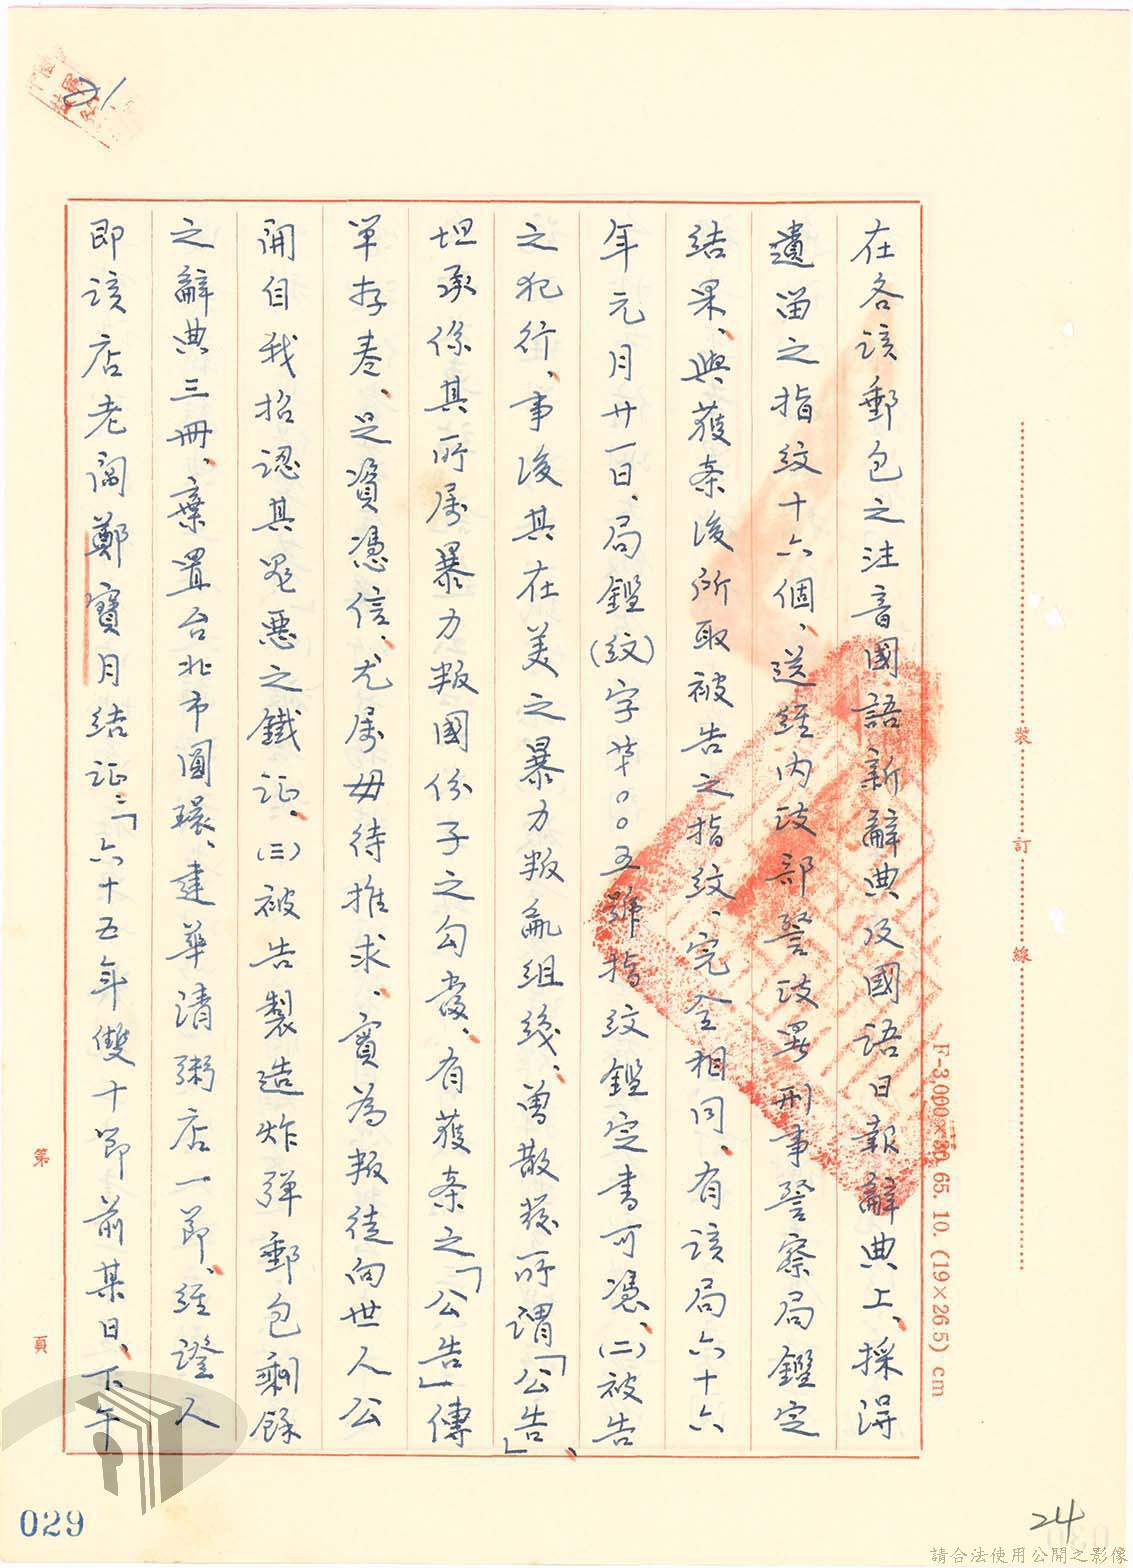 在各該郵包之注音國語新辭典及國語日報辭典上、採得
遺留之指紋十六個、送經內政部警政署刑事警察局鑑定
結果、與獲案後所取被告之指紋、完全相同、有該局六十六
年元月廿一日、局鑑(紋)字第００五號指紋鑑定書可憑、(二)被告
之犯行、事後其在美之暴力叛亂組織、曾散發所謂「公告」、
坦承係其所屬暴力叛國份子之勾當、有獲案之「公告」傳
單存卷、足資憑信、尤屬毋待推求、實為叛徒向世人公
開自我招認其罪惡之鐵证、(三)被告製造炸彈郵包剩餘
之辭典三冊、棄置台北市圓環、建華清粥店一節、經證人
即該店老闆鄭寶月結证：「六十五年雙十節前某日、下午
裝訂線
F-3,000×30 65. 10. (19×26.5) cm
第 頁
029
24
請合法使用公開之影像